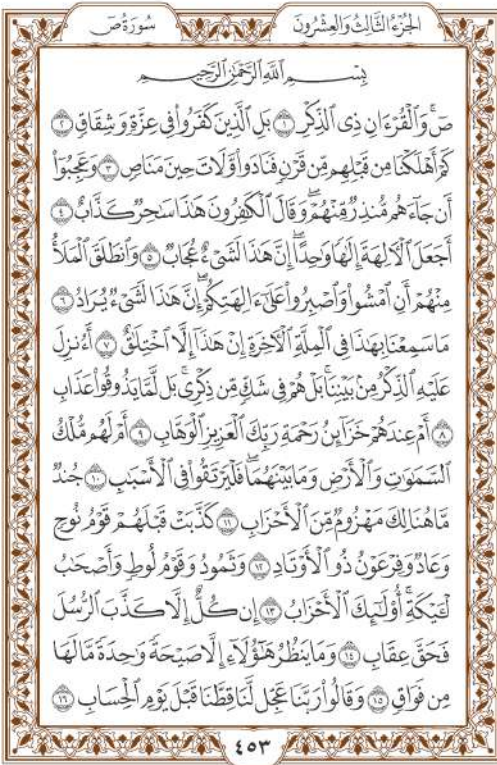 الجزء الثالث والعشرون
سورة ص
بسم الله الرحمن الرحيم
صٓۚ وَٱلْقُرْءَانِ ذِى ٱلذِّكْرِ ۝١ بَلِ ٱلَّذِينَ كَفَرُوا۟ فِى عِزَّةٍۢ وَشِقَاقٍۢ ۝٢
كَمْ أَهْلَكْنَا مِن قَبْلِهِم مِّن قَرْنٍۢ فَنَادَوا۟ وَّلَاتَ حِينَ مَنَاصٍۢ ۝٣ وَعَجِبُوٓا۟
أَن جَآءَهُم مُّنذِرٌۭ مِّنْهُمْ ۖ وَقَالَ ٱلْكَٰفِرُونَ هَٰذَا سَٰحِرٌۭ كَذَّابٌ ۝٤
أَجَعَلَ ٱلْءَالِهَةَ إِلَٰهًۭا وَٰحِدًا ۖ إِنَّ هَٰذَا لَشَىْءٌ عُجَابٌۭ ۝٥ وَٱنطَلَقَ ٱلْمَلَأُ
مِنْهُمْ أَنِ ٱمْشُوا۟ وَٱصْبِرُوا۟ عَلَىٰٓ ءَالِهَتِكُمْ ۖ إِنَّ هَٰذَا لَشَىْءٌۭ يُرَادُ ۝٦
مَا سَمِعْنَا بِهَٰذَا فِى ٱلْمِلَّةِ ٱلْءَاخِرَةِ إِنْ هَٰذَآ إِلَّا ٱخْتِلَٰقٌ ۝٧ أَءُنزِلَ
عَلَيْهِ ٱلذِّكْرُ مِنۢ بَيْنِنَا ۚ بَلْ هُمْ فِى شَكٍّۢ مِّن ذِكْرِى ۖ بَل لَّمَّا يَذُوقُوا۟ عَذَابِ
۝٨ أَمْ عِندَهُمْ خَزَآئِنُ رَحْمَةِ رَبِّكَ ٱلْعَزِيزِ ٱلْوَهَّابِ ۝٩ أَمْ لَهُم مُّلْكُ
ٱلسَّمَٰوَٰتِ وَٱلْأَرْضِ وَمَا بَيْنَهُمَا ۖ فَلْيَرْتَقُوا۟ فِى ٱلْأَسْبَٰبِ ۝١٠ جُندٌۭ
مَّا هُنَالِكَ مَهْزُومٌۭ مِّنَ ٱلْأَحْزَابِ ۝١١ كَذَّبَتْ قَبْلَهُمْ قَوْمُ نُوحٍۢ
وَعَادٌۭ وَفِرْعَوْنُ ذُو ٱلْأَوْتَادِ ۝١٢ وَثَمُودُ وَقَوْمُ لُوطٍۢ وَأَصْحَٰبُ
لْـَٔيْكَةِ ۚ أُو۟لَٰٓئِكَ ٱلْأَحْزَابُ ۝١٣ إِن كُلٌّ إِلَّا كَذَّبَ ٱلرُّسُلَ
فَحَقَّ عِقَابِ ۝١٤ وَمَا يَنظُرُ هَٰٓؤُلَآءِ إِلَّا صَيْحَةًۭ وَٰحِدَةًۭ مَّا لَهَا
مِن فَوَاقٍۢ ۝١٥ وَقَالُوا۟ رَبَّنَا عَجِّل لَّنَا قِطَّنَا قَبْلَ يَوْمِ ٱلْحِسَابِ ۝١٦
٤٥٣